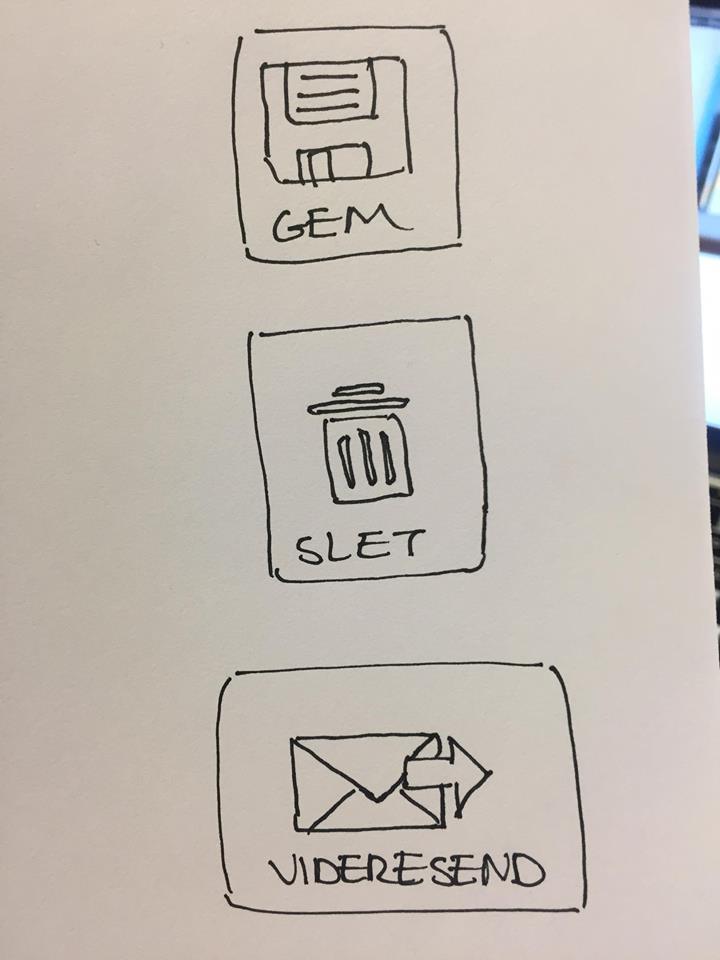 GEM
SLET
VIDERESEND